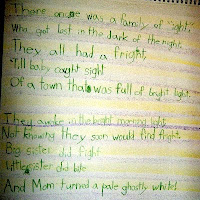 There once was a family of "ight,"
Who got lost in the dark of the night.
They all had a fright,
Till baby caught sight
Of a town that was full of bright light.
They awoke in the bright morning light
Not knowing they soon would find flight.
Big sister did fight
Little sister did bite
And Mom turned a pale ghostly white!